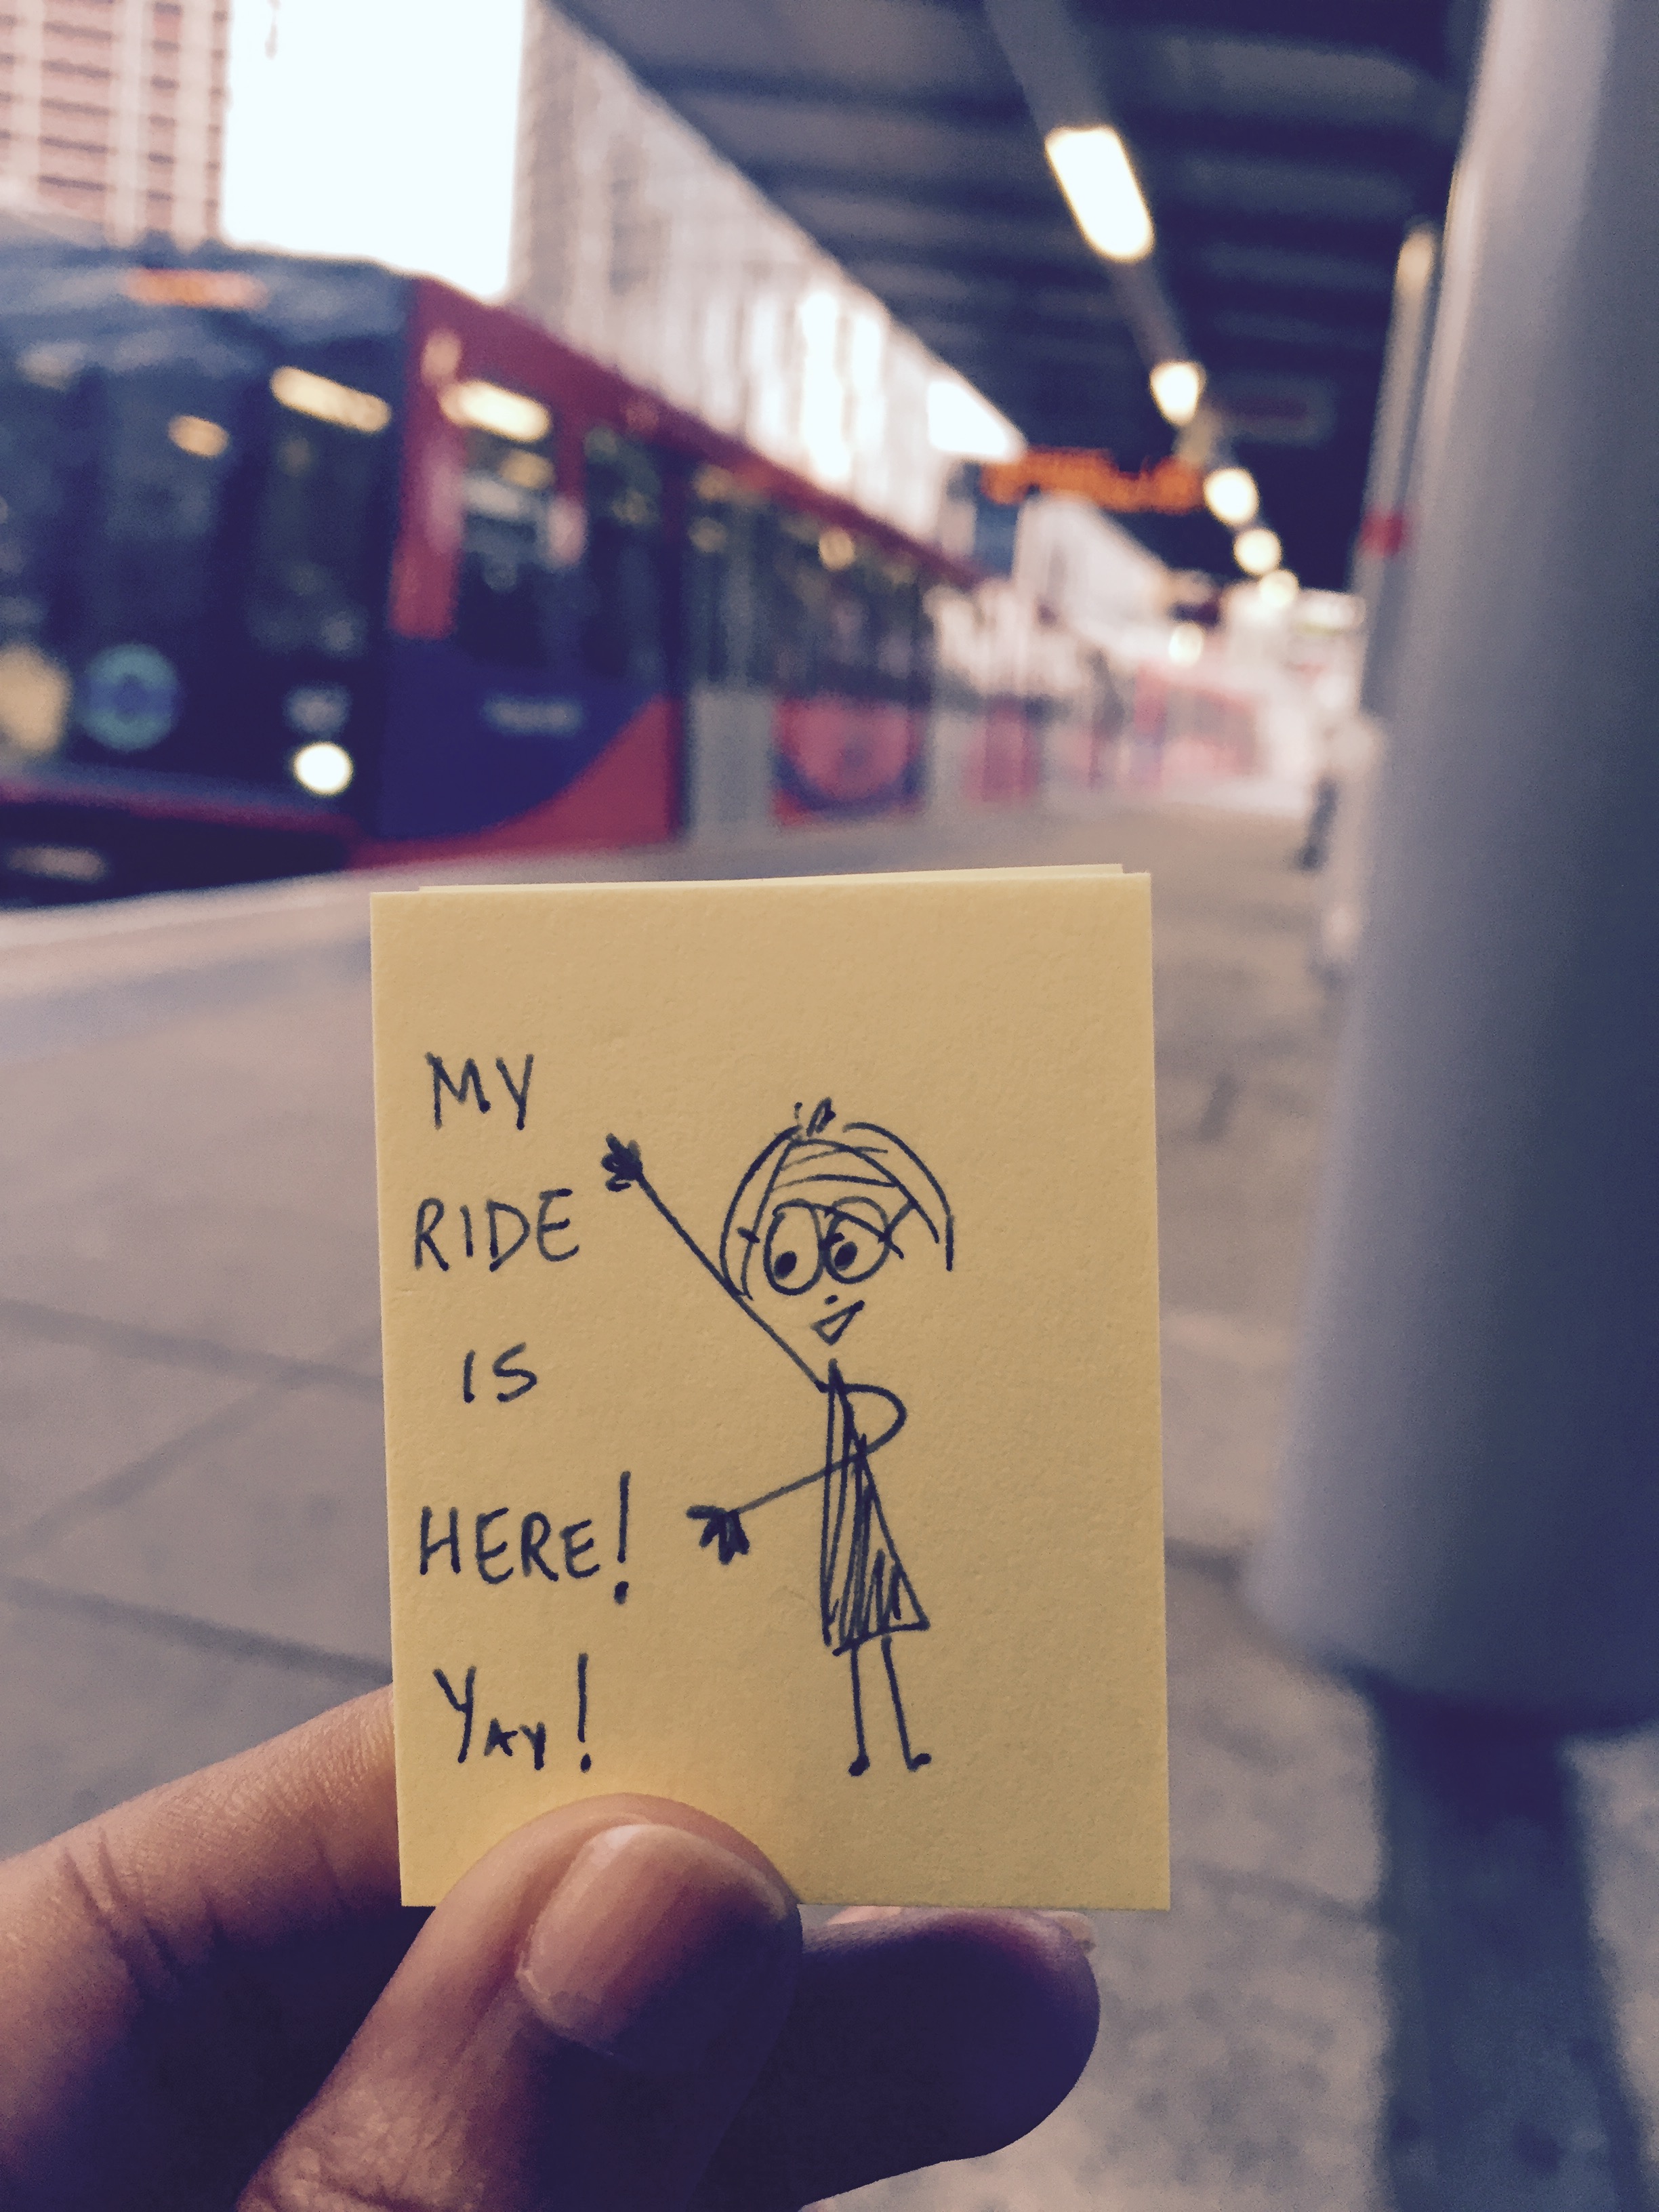 MY
RIDE
IS
HERE!
YAY!